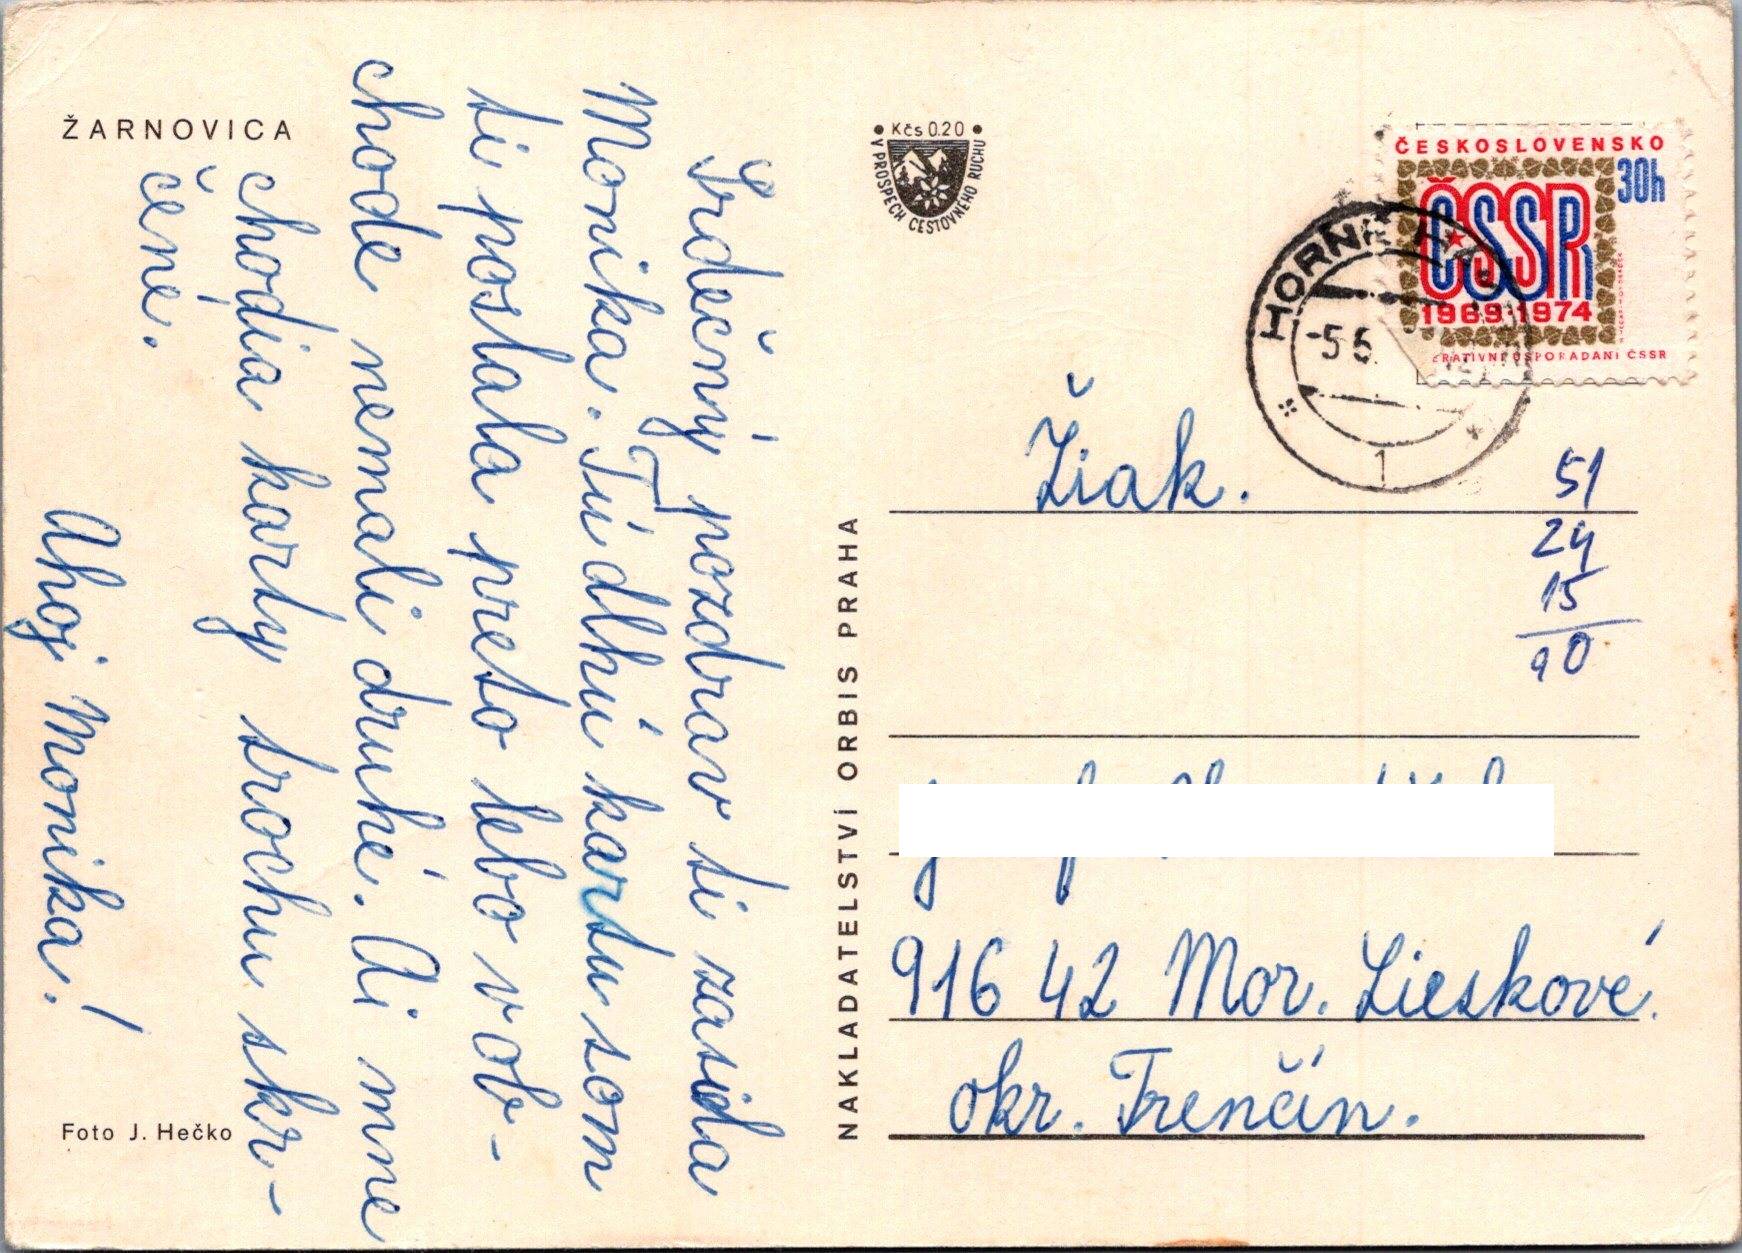 ŽARNOVICA
Srdečný pozdrav ti zasiela
Monika. Tú dlhú kartu som
ti poslala preto lebo v ob-
chode nemali druhé. Ai mne
chodia karty trochu skr-
čené.
Ahoj Monika!
Foto J. Hečko
NAKLADATELSTVÍ ORBIS PRAHA
• Kčs 0.20 •
V PROSPECH CESTOVNÉHO RUCHU
ČESKOSLOVENSKO
30h
ČSSR
1969·1974
ERATIVNÍ USPOŘÁDÁNÍ ČSSR
HORNÉ
-5 6.
1
Žiak.
51
24
15
90
916 42 Mor. Lieskové.
okr. Trenčín.